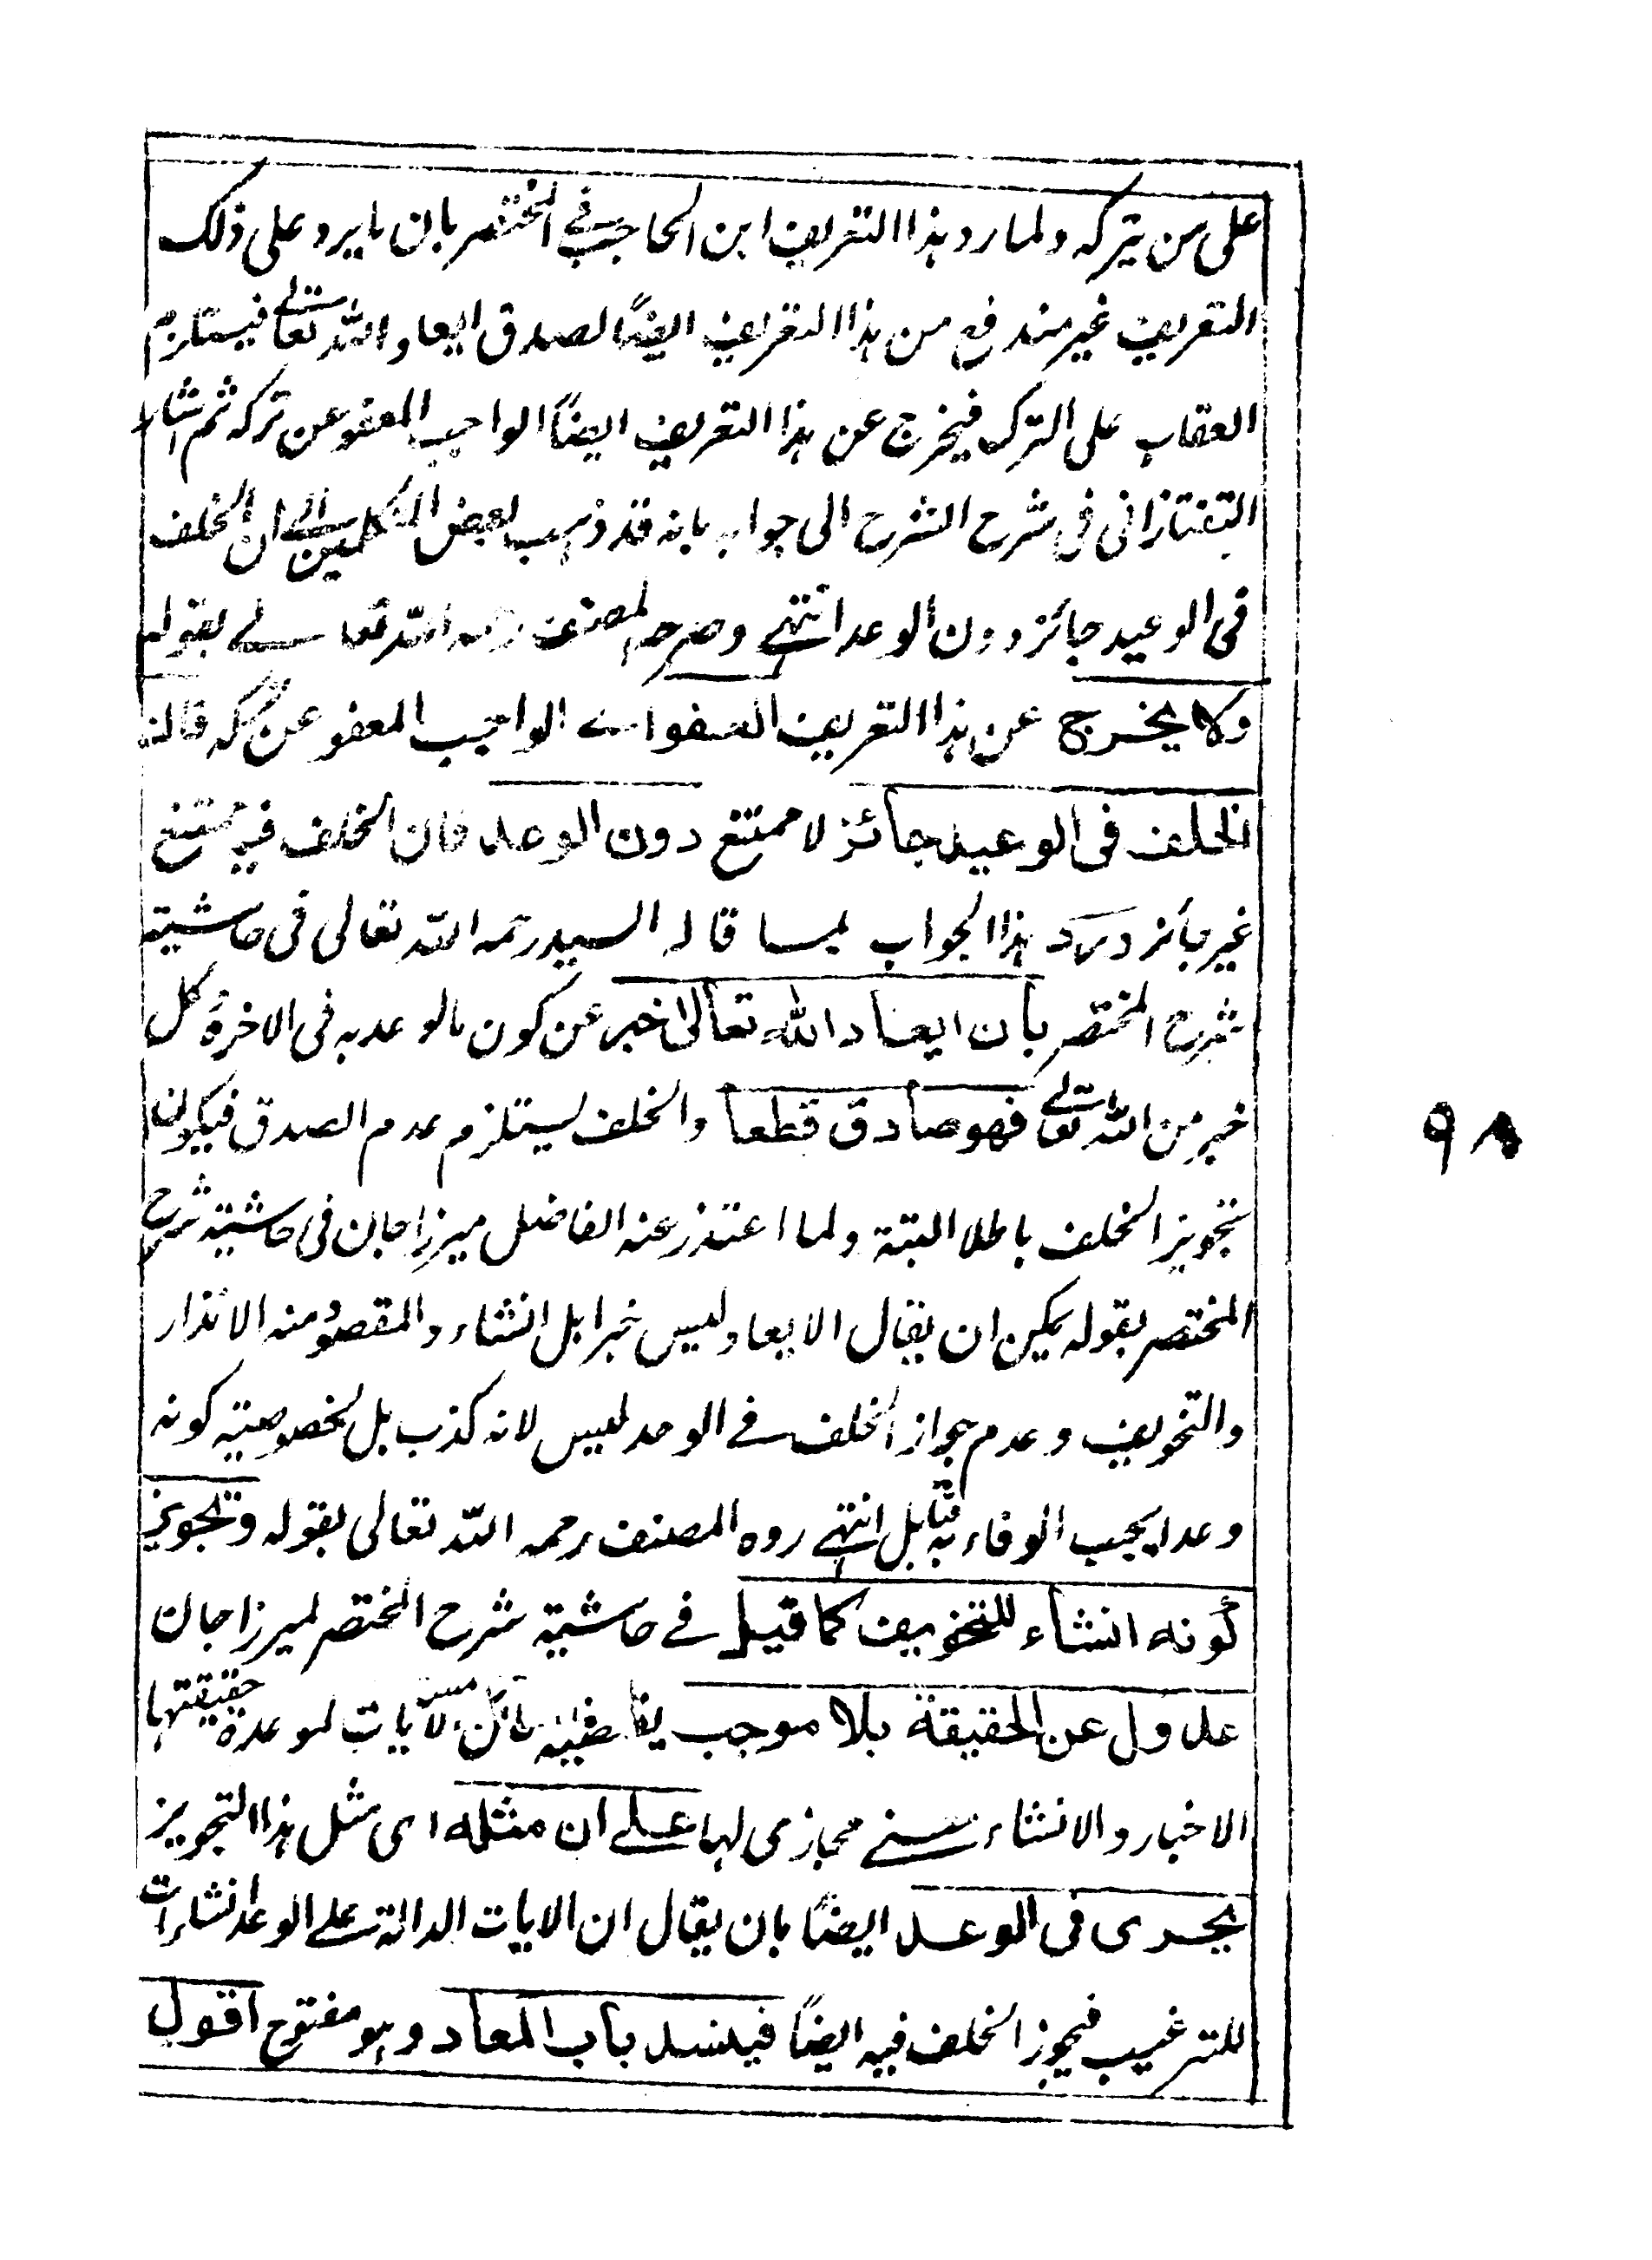 على من يتركه ولما رد هذا التعريف ابن الحاجب في المختصر بان ما يرد على ذلك
التعريف غير مندفع من هذا التعريف ايضًا لصدق ايعاد الله تعالى فيستلزم
العقاب على الترك فيخرج عن هذا التعريف ايضًا الواجب المعفو عن تركه ثم اشار
التفتازانى فى شرح الشرح الى جوابه بانه قد ذهب بعض المتكلمين الى ان الخلف
فى الوعيد جائز دون الوعد انتهى وصرح المصنف رحمه الله تعالى بقوله
ولا يخرج عن هذا التعريف العفو اى الواجب المعفو عن تركه فان
الخلف فى الوعيد جائز لا ممتنع دون الوعد فان الخلف فيه ممتنع
غير جائز ورد هذا الجواب بما قاله السيد رحمه الله تعالى فى حاشية
شرح المختصر بان ايعاد الله تعالى خبر عن كون مالوعد به فى الاخرة وكل
خبر من الله تعالى فهو صادق قطعا والخلف يستلزم عدم الصدق فيكون
تجويز الخلف باطلا البتة ولما اعتذر عنه الفاضل ميرزا جان فى حاشية شرح
المختصر بقوله يمكن ان يقال الايعاد ليس خبرا بل انشاء والمقصود منه الانذار
والتخويف وعدم جواز الخلف فى الوعد ليس لانه كذب بل لخصوصية كونه
وعدا يجب الوفاء به تامل انتهى رده المصنف رحمه الله تعالى بقوله وتجويز
كونه انشاء للتخويف كما قيل فى حاشية شرح المختصر لميرزا جان
عدول عن الحقيقة بلا موجب يقتضيه فان الايات لموعدة حقيقتها
الاخبار والانشاء معنى مجازى لها على ان مثله اى مثل هذا التجويز
يجرى فى الوعد ايضًا بان يقال ان الايات الدالة على الوعد انشاءات
للترغيب فيجوز الخلف فيه ايضًا فينسد باب المعاد وهو مفتوح اقول
٩٨